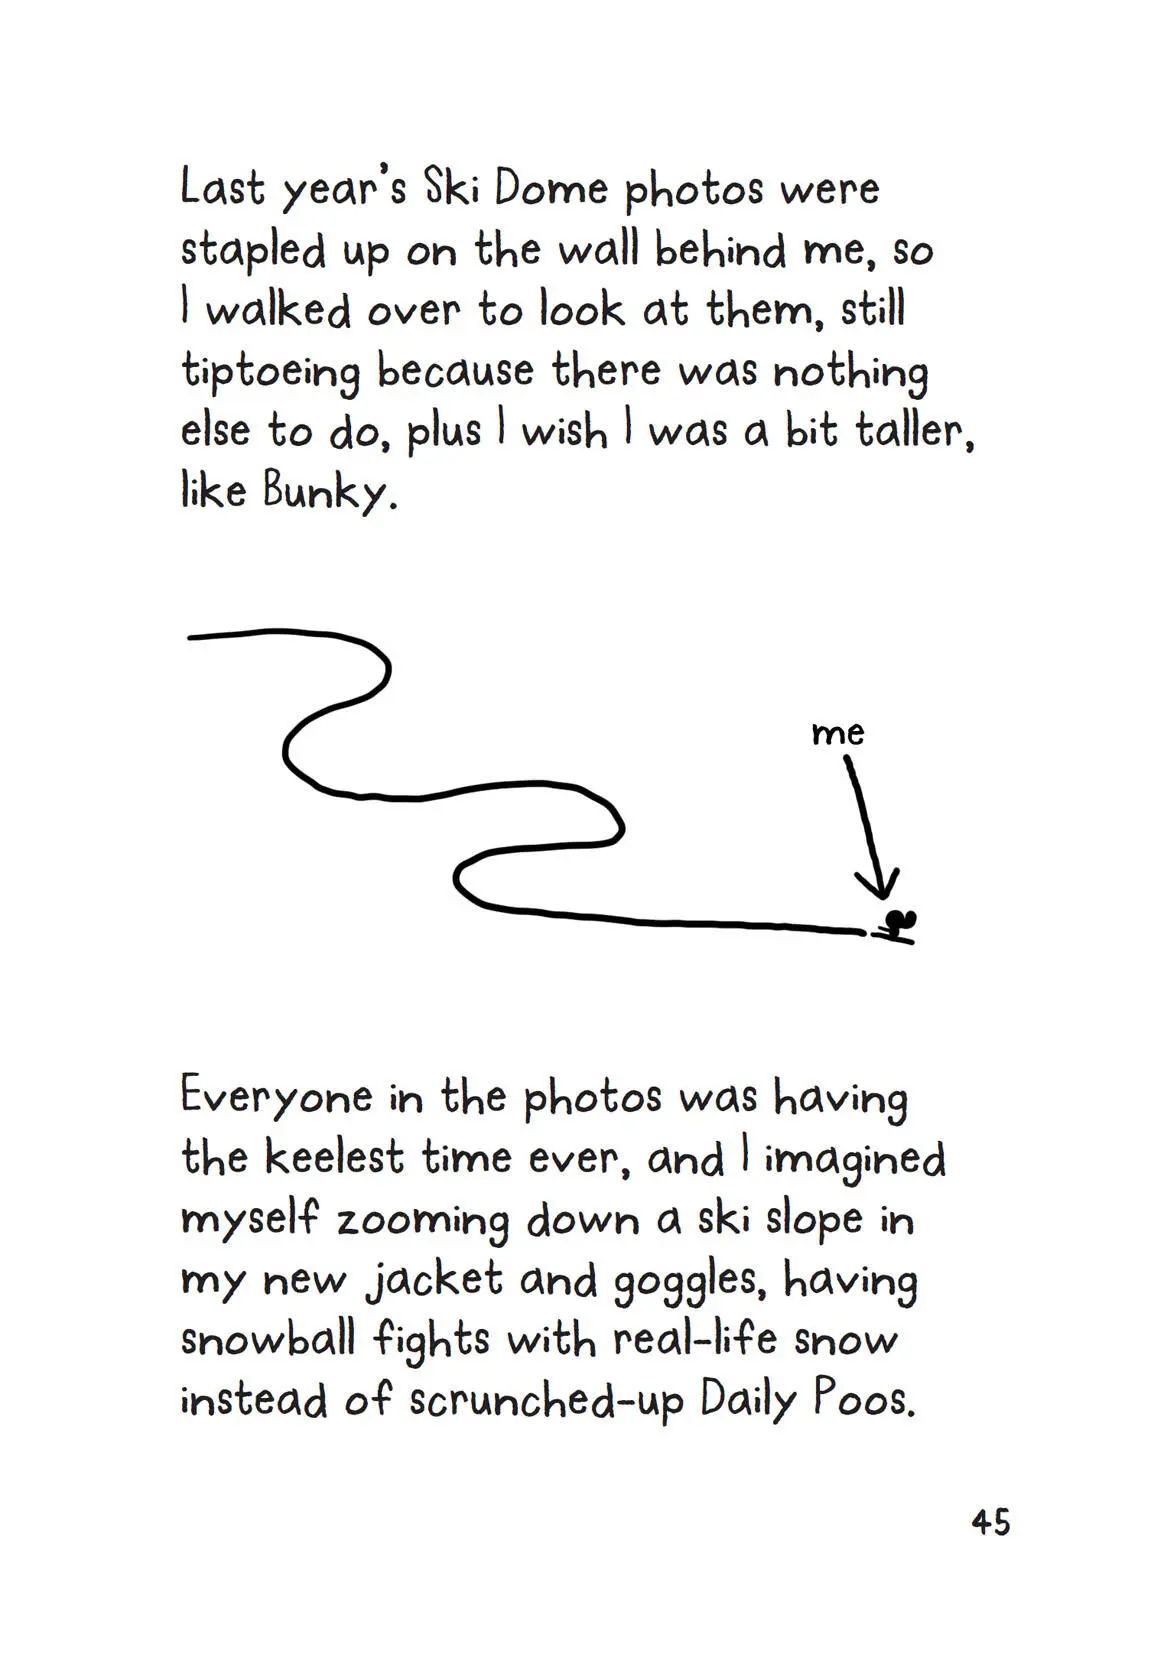 Last year's Ski Dome photos were
stapled up on the wall behind me, so
I walked over to look at them, still
tiptoeing because there was nothing
else to do, plus I wish I was a bit taller,
like Bunky.
me
Everyone in the photos was having
the keelest time ever, and I imagined
myself zooming down a ski slope in
my new jacket and goggles, having
snowball fights with real-life snow
instead of scrunched-up Daily Poos.
45